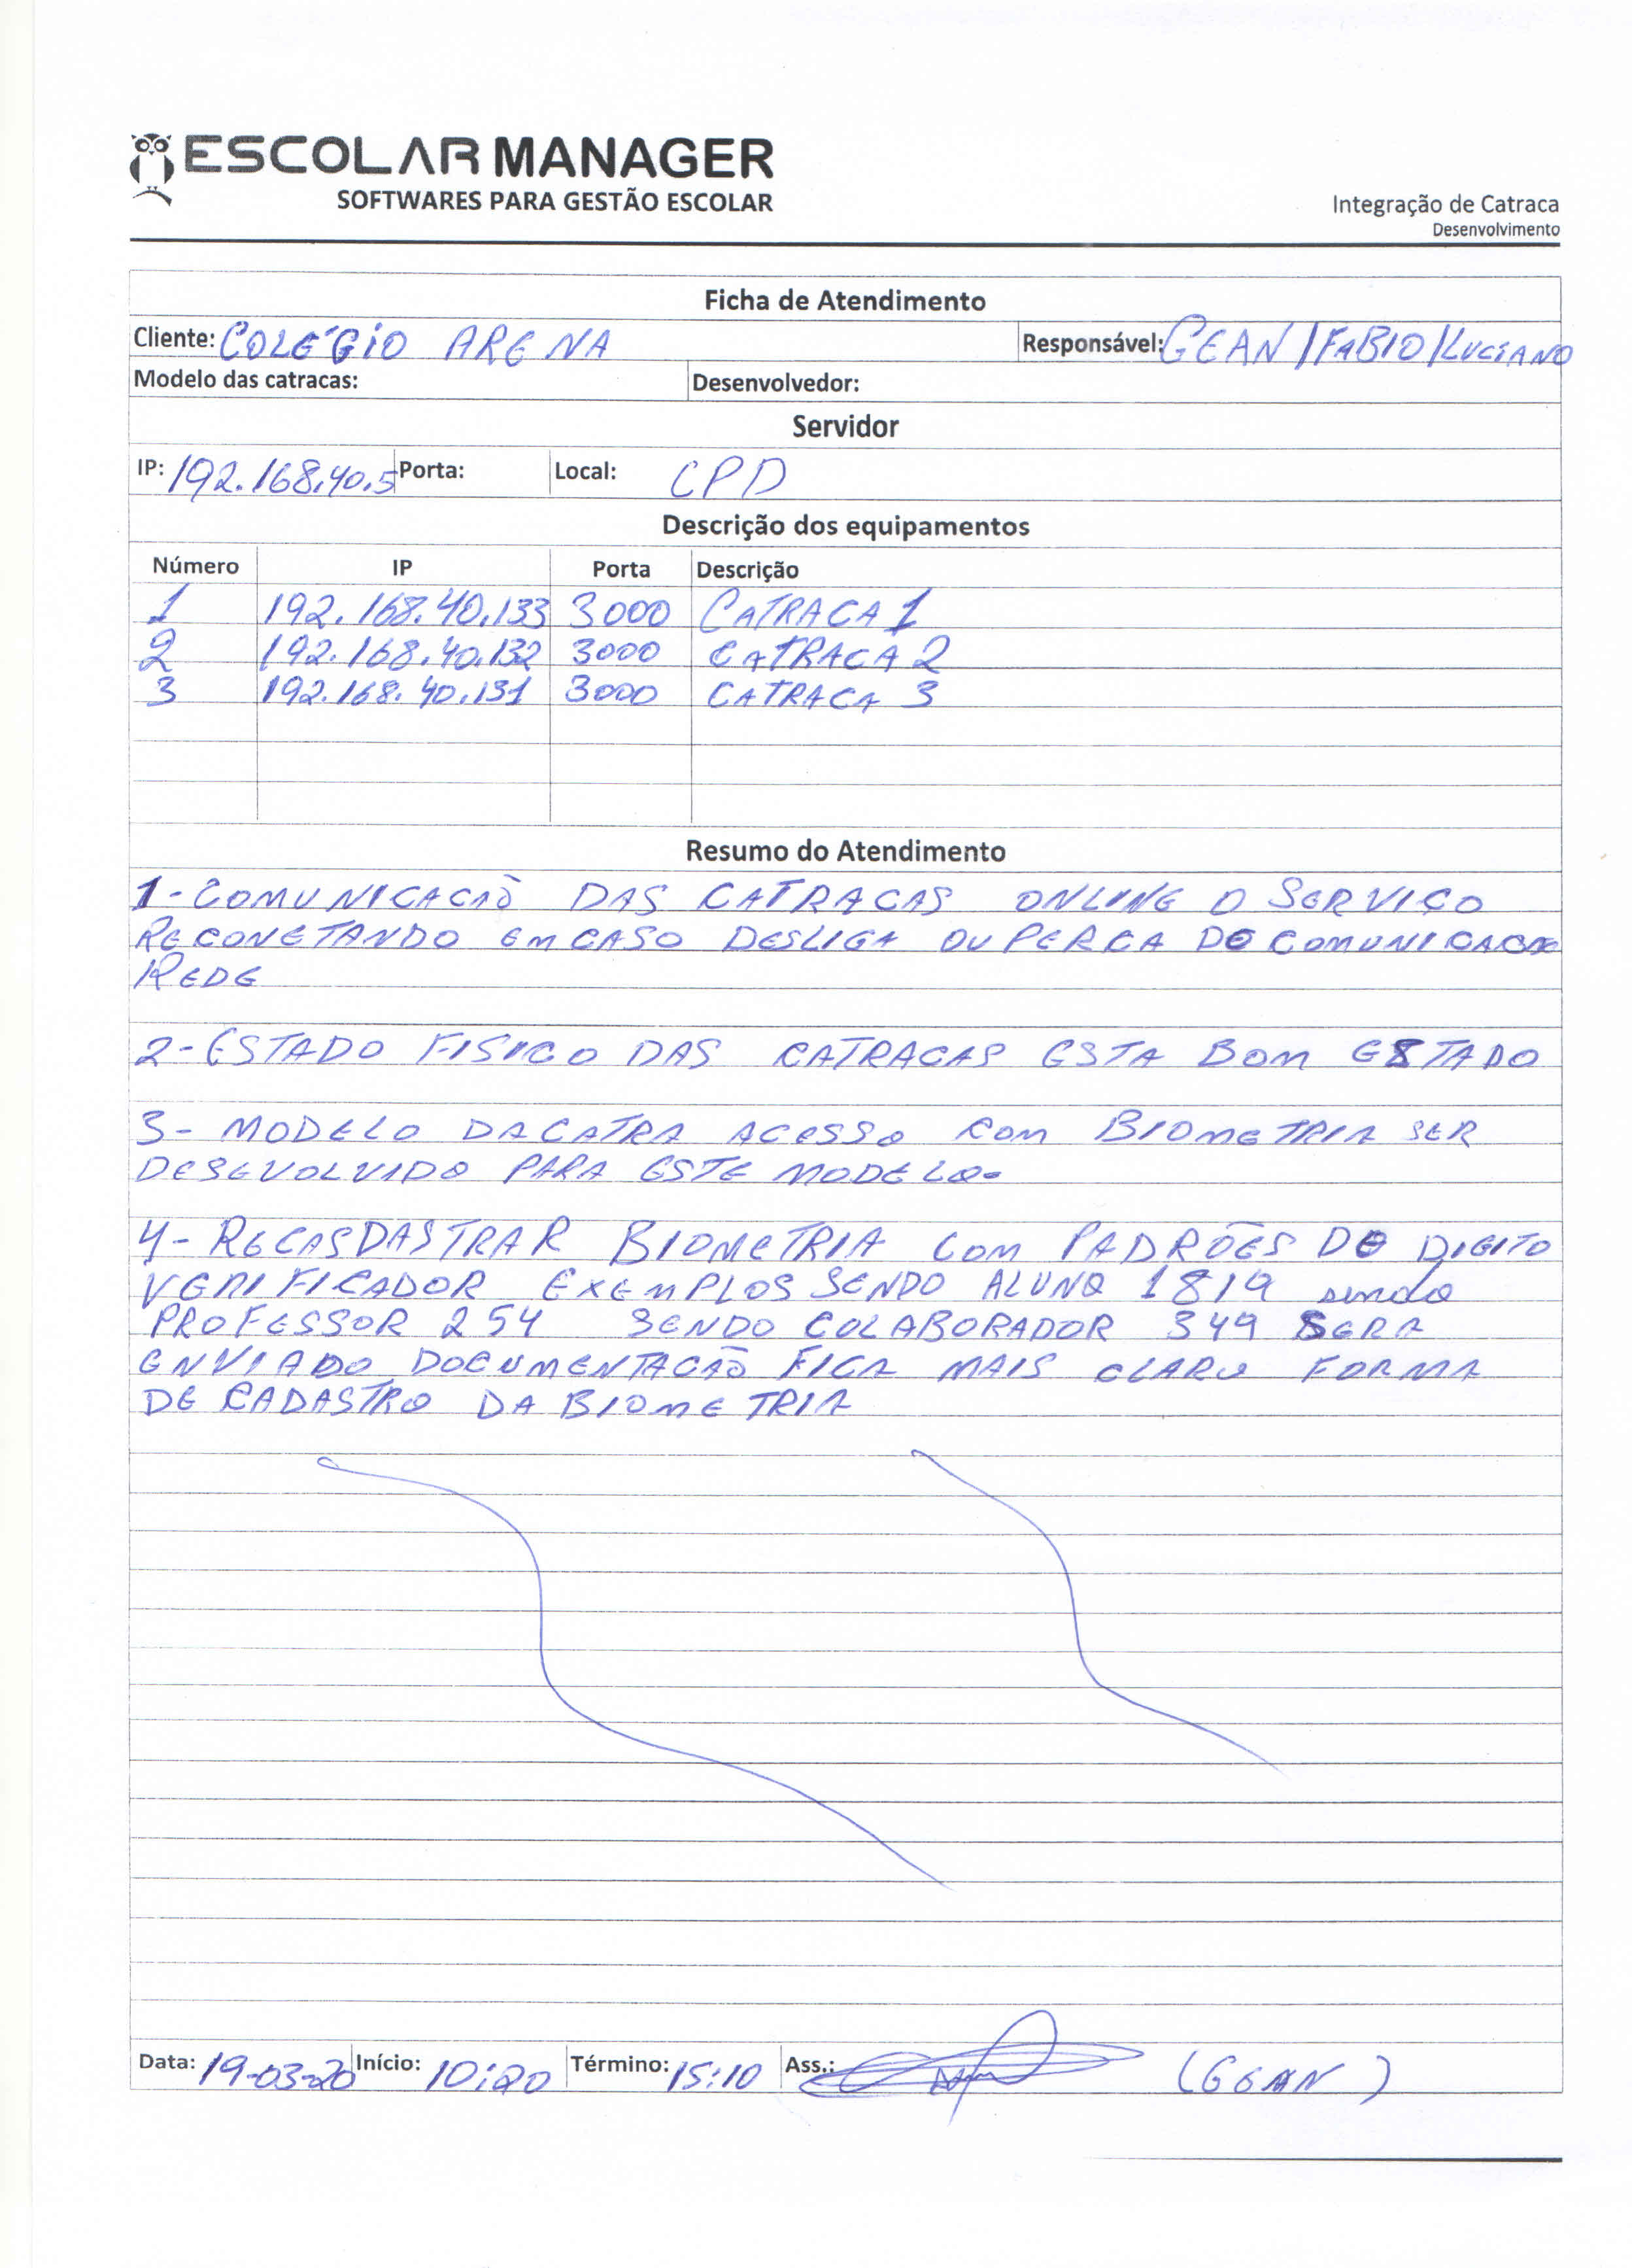 ESCOLAR MANAGER
SOFTWARES PARA GESTÃO ESCOLAR
Integração de Catraca
Desenvolvimento
Ficha de Atendimento
Cliente: COLÉGIO ARENA Responsável: GEAN / FABIO / LUCIANO
Modelo das catracas: Desenvolvedor:
Servidor
IP: 192.168.40.5 Porta: Local: CPD
Descrição dos equipamentos
Número IP Porta Descrição
1 192.168.40.133 3000 CATRACA 1
2 192.168.40.132 3000 CATRACA 2
3 192.168.40.131 3000 CATRACA 3
Resumo do Atendimento
1- COMUNICACÃO DAS CATRACAS ONLINE O SERVIÇO
RECONETANDO EM CASO DESLIGA OU PERCA DE COMUNICACAO
REDE
2- ESTADO FISICO DAS CATRACAS ESTA BOM ESTADO
3- MODELO DA CATRA ACESSO COM BIOMETRIA SER
DESEVOLVIDO PARA ESTE MODELO.
4- RECASDASTRAR BIOMETRIA COM PADRÕES DE DIGITO
VERIFICADOR EXEMPLOS SENDO ALUNO 1819 sendo
PROFESSOR 254 SENDO COLABORADOR 349 SERA
ENVIADO DOCUMENTACÃO FICA MAIS CLARO FORMA
DE CADASTRO DA BIOMETRIA
Data: 19-03-20 Início: 10:20 Término: 15:10 Ass.: (GEAN)